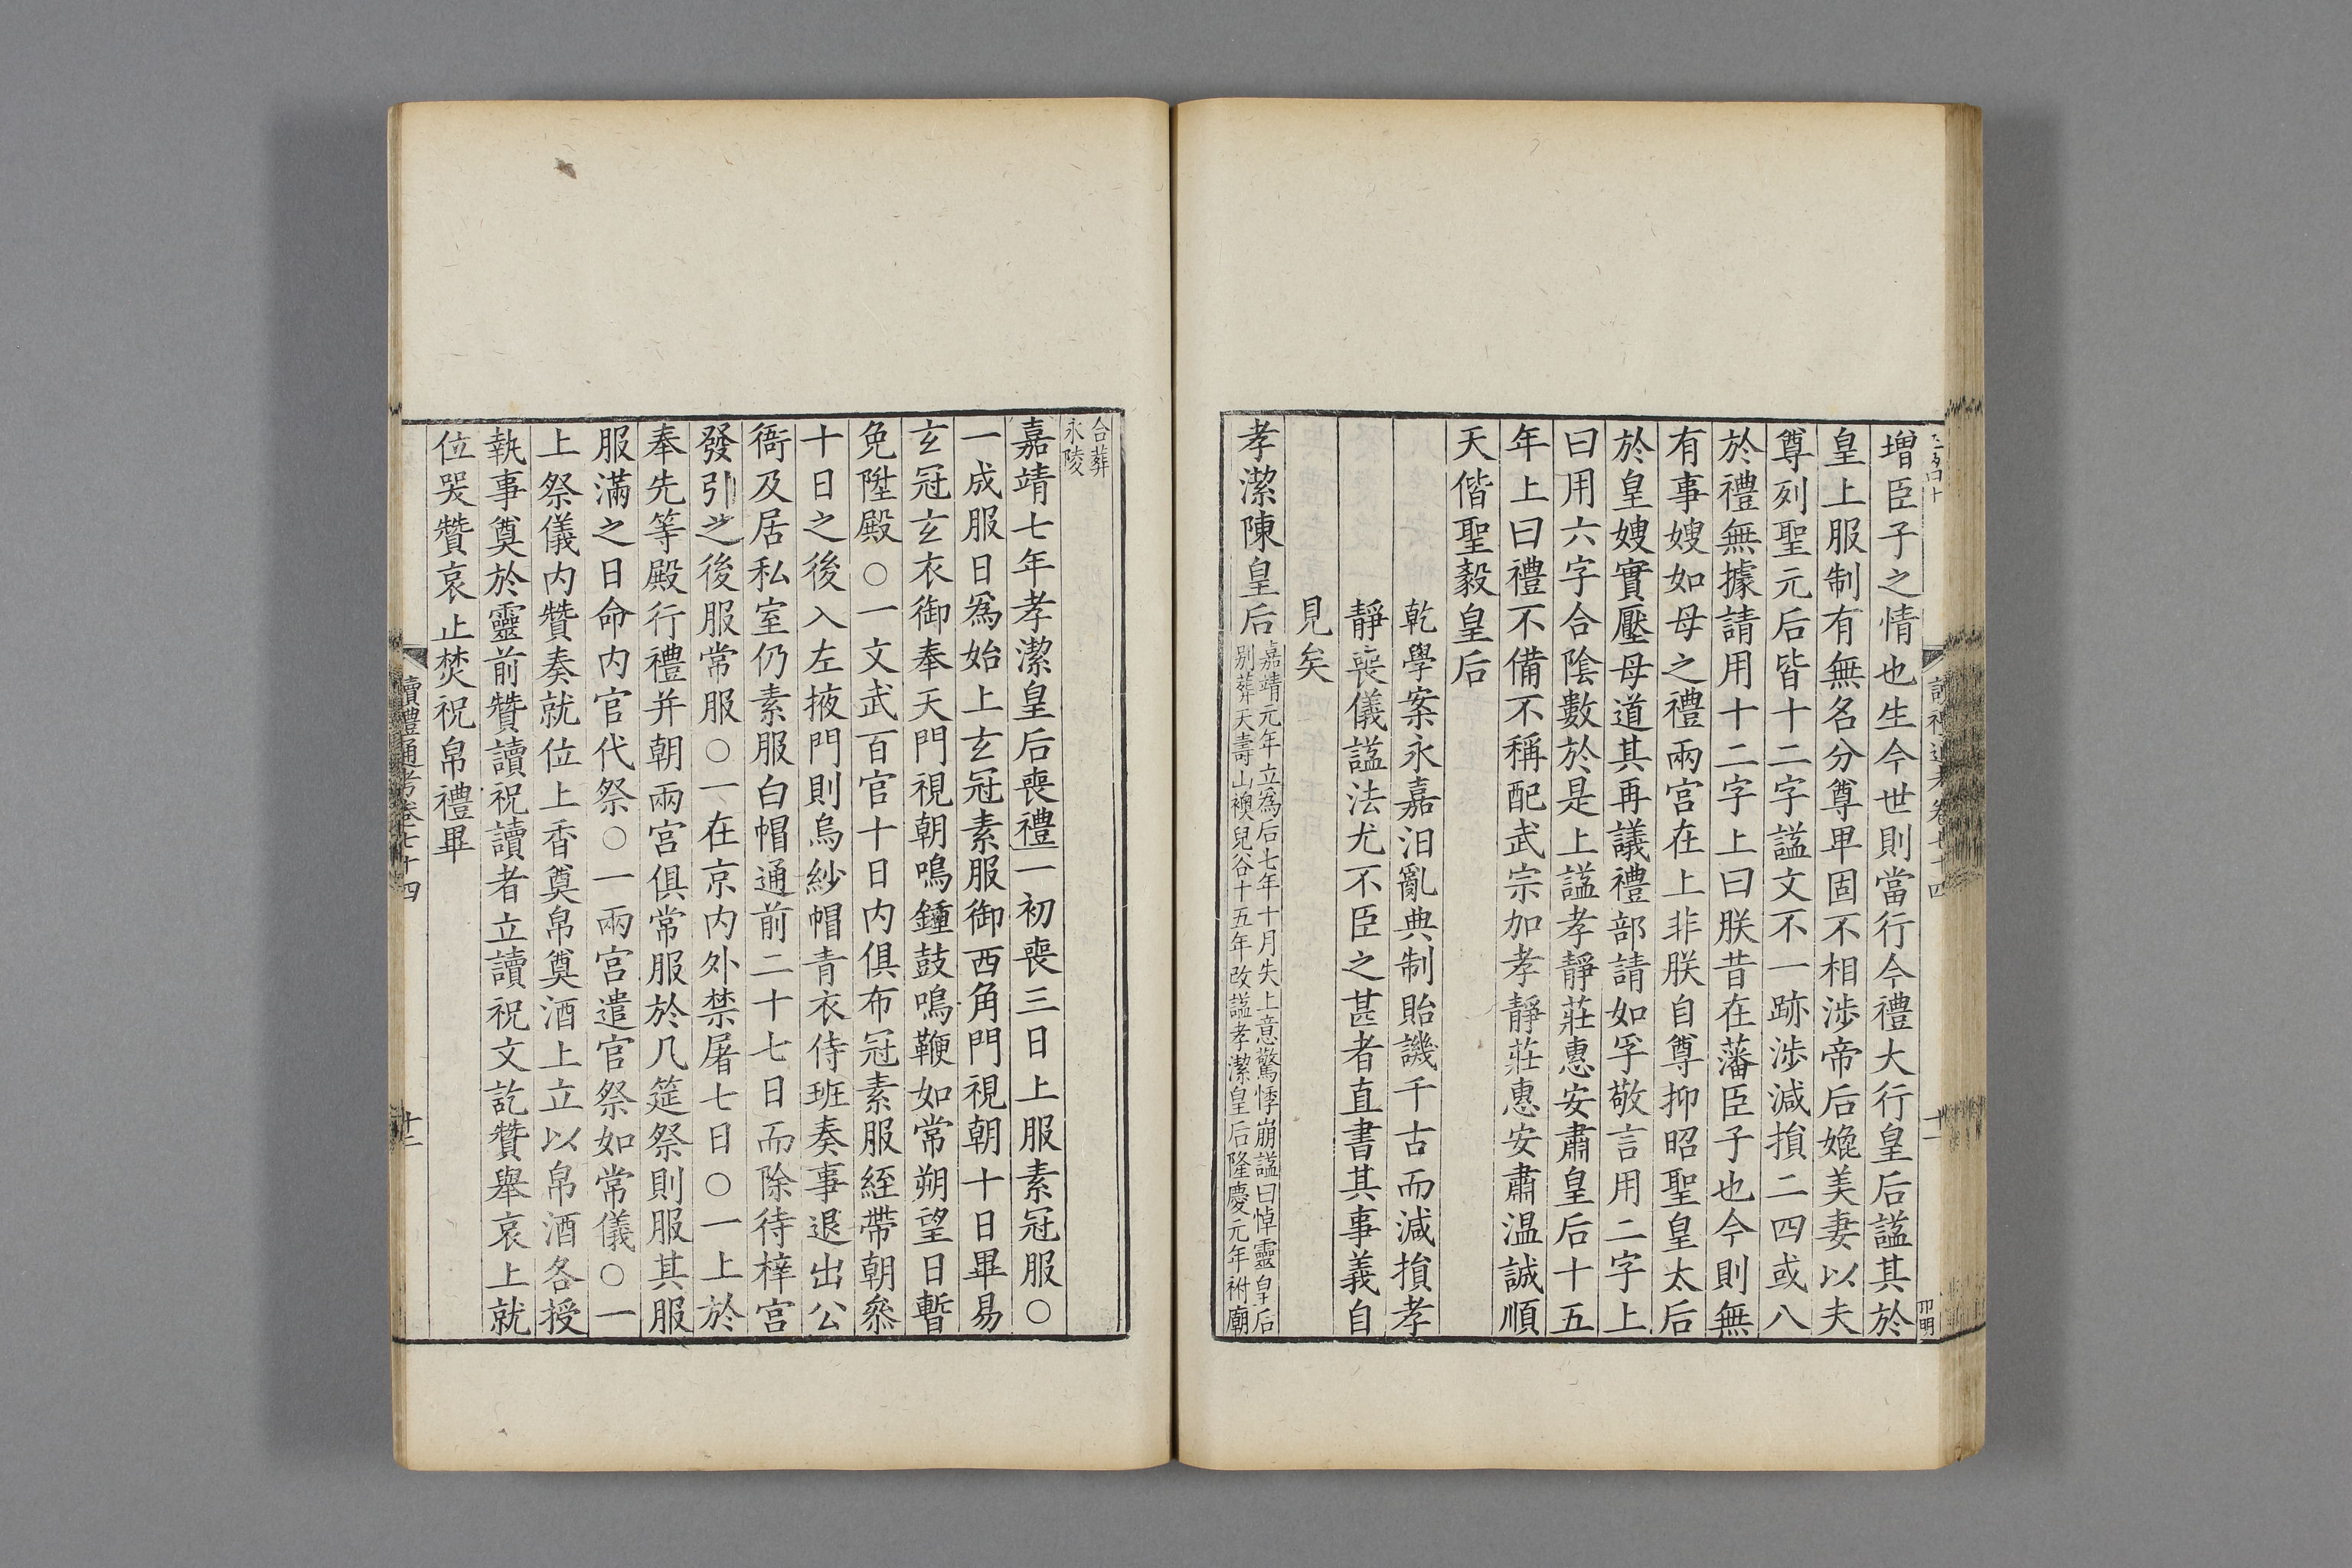 增臣子之情也生今世則當行今禮大行皇后謚其於
皇上服制有無名分尊卑固不相涉帝后媲美妻以夫
尊列聖元后皆十二字謚文不一跡涉減損二四或八
於禮無據請用十二字上曰朕昔在藩臣子也今則無
有事嫂如母之禮兩宮在上非朕自尊抑昭聖皇太后
於皇嫂實壓母道其再議禮部請如孚敬言用二字上
曰用六字合陰數於是上謚孝靜莊惠安肅皇后十五
年上曰禮不備不稱配武宗加孝靜莊惠安肅温誠順
天偕聖毅皇后
乾學案永嘉汨亂典制貽譏千古而減損孝
靜喪儀謚法尤不臣之甚者直書其事義自
見矣
孝潔陳皇后
嘉靖元年立爲后七年十月失上意驚悸崩謚曰悼靈皇后
別葬天壽山襖兒谷十五年改謚孝潔皇后隆慶元年祔廟
讀禮通考卷七十四
十一
合葬
永陵
嘉靖七年孝潔皇后喪禮一初喪三日上服素冠服○
一成服日爲始上玄冠素服御西角門視朝十日畢易
玄冠玄衣御奉天門視朝鳴鐘鼓鳴鞭如常朔望日暫
免陞殿○一文武百官十日内俱布冠素服絰帶朝叅
十日之後入左掖門則烏紗帽青衣侍班奏事退出公
衙及居私室仍素服白帽通前二十七日而除待梓宮
發引之後服常服○一在京内外禁屠七日○一上於
奉先等殿行禮并朝兩宮俱常服於几筵祭則服其服
服滿之日命内官代祭○一兩宮遣官祭如常儀○一
上祭儀内贊奏就位上香奠帛奠酒上立以帛酒各授
執事奠於靈前贊讀祝讀者立讀祝文訖贊舉哀上就
位哭贊哀止焚祝帛禮畢
讀禮通考卷七十四
十二